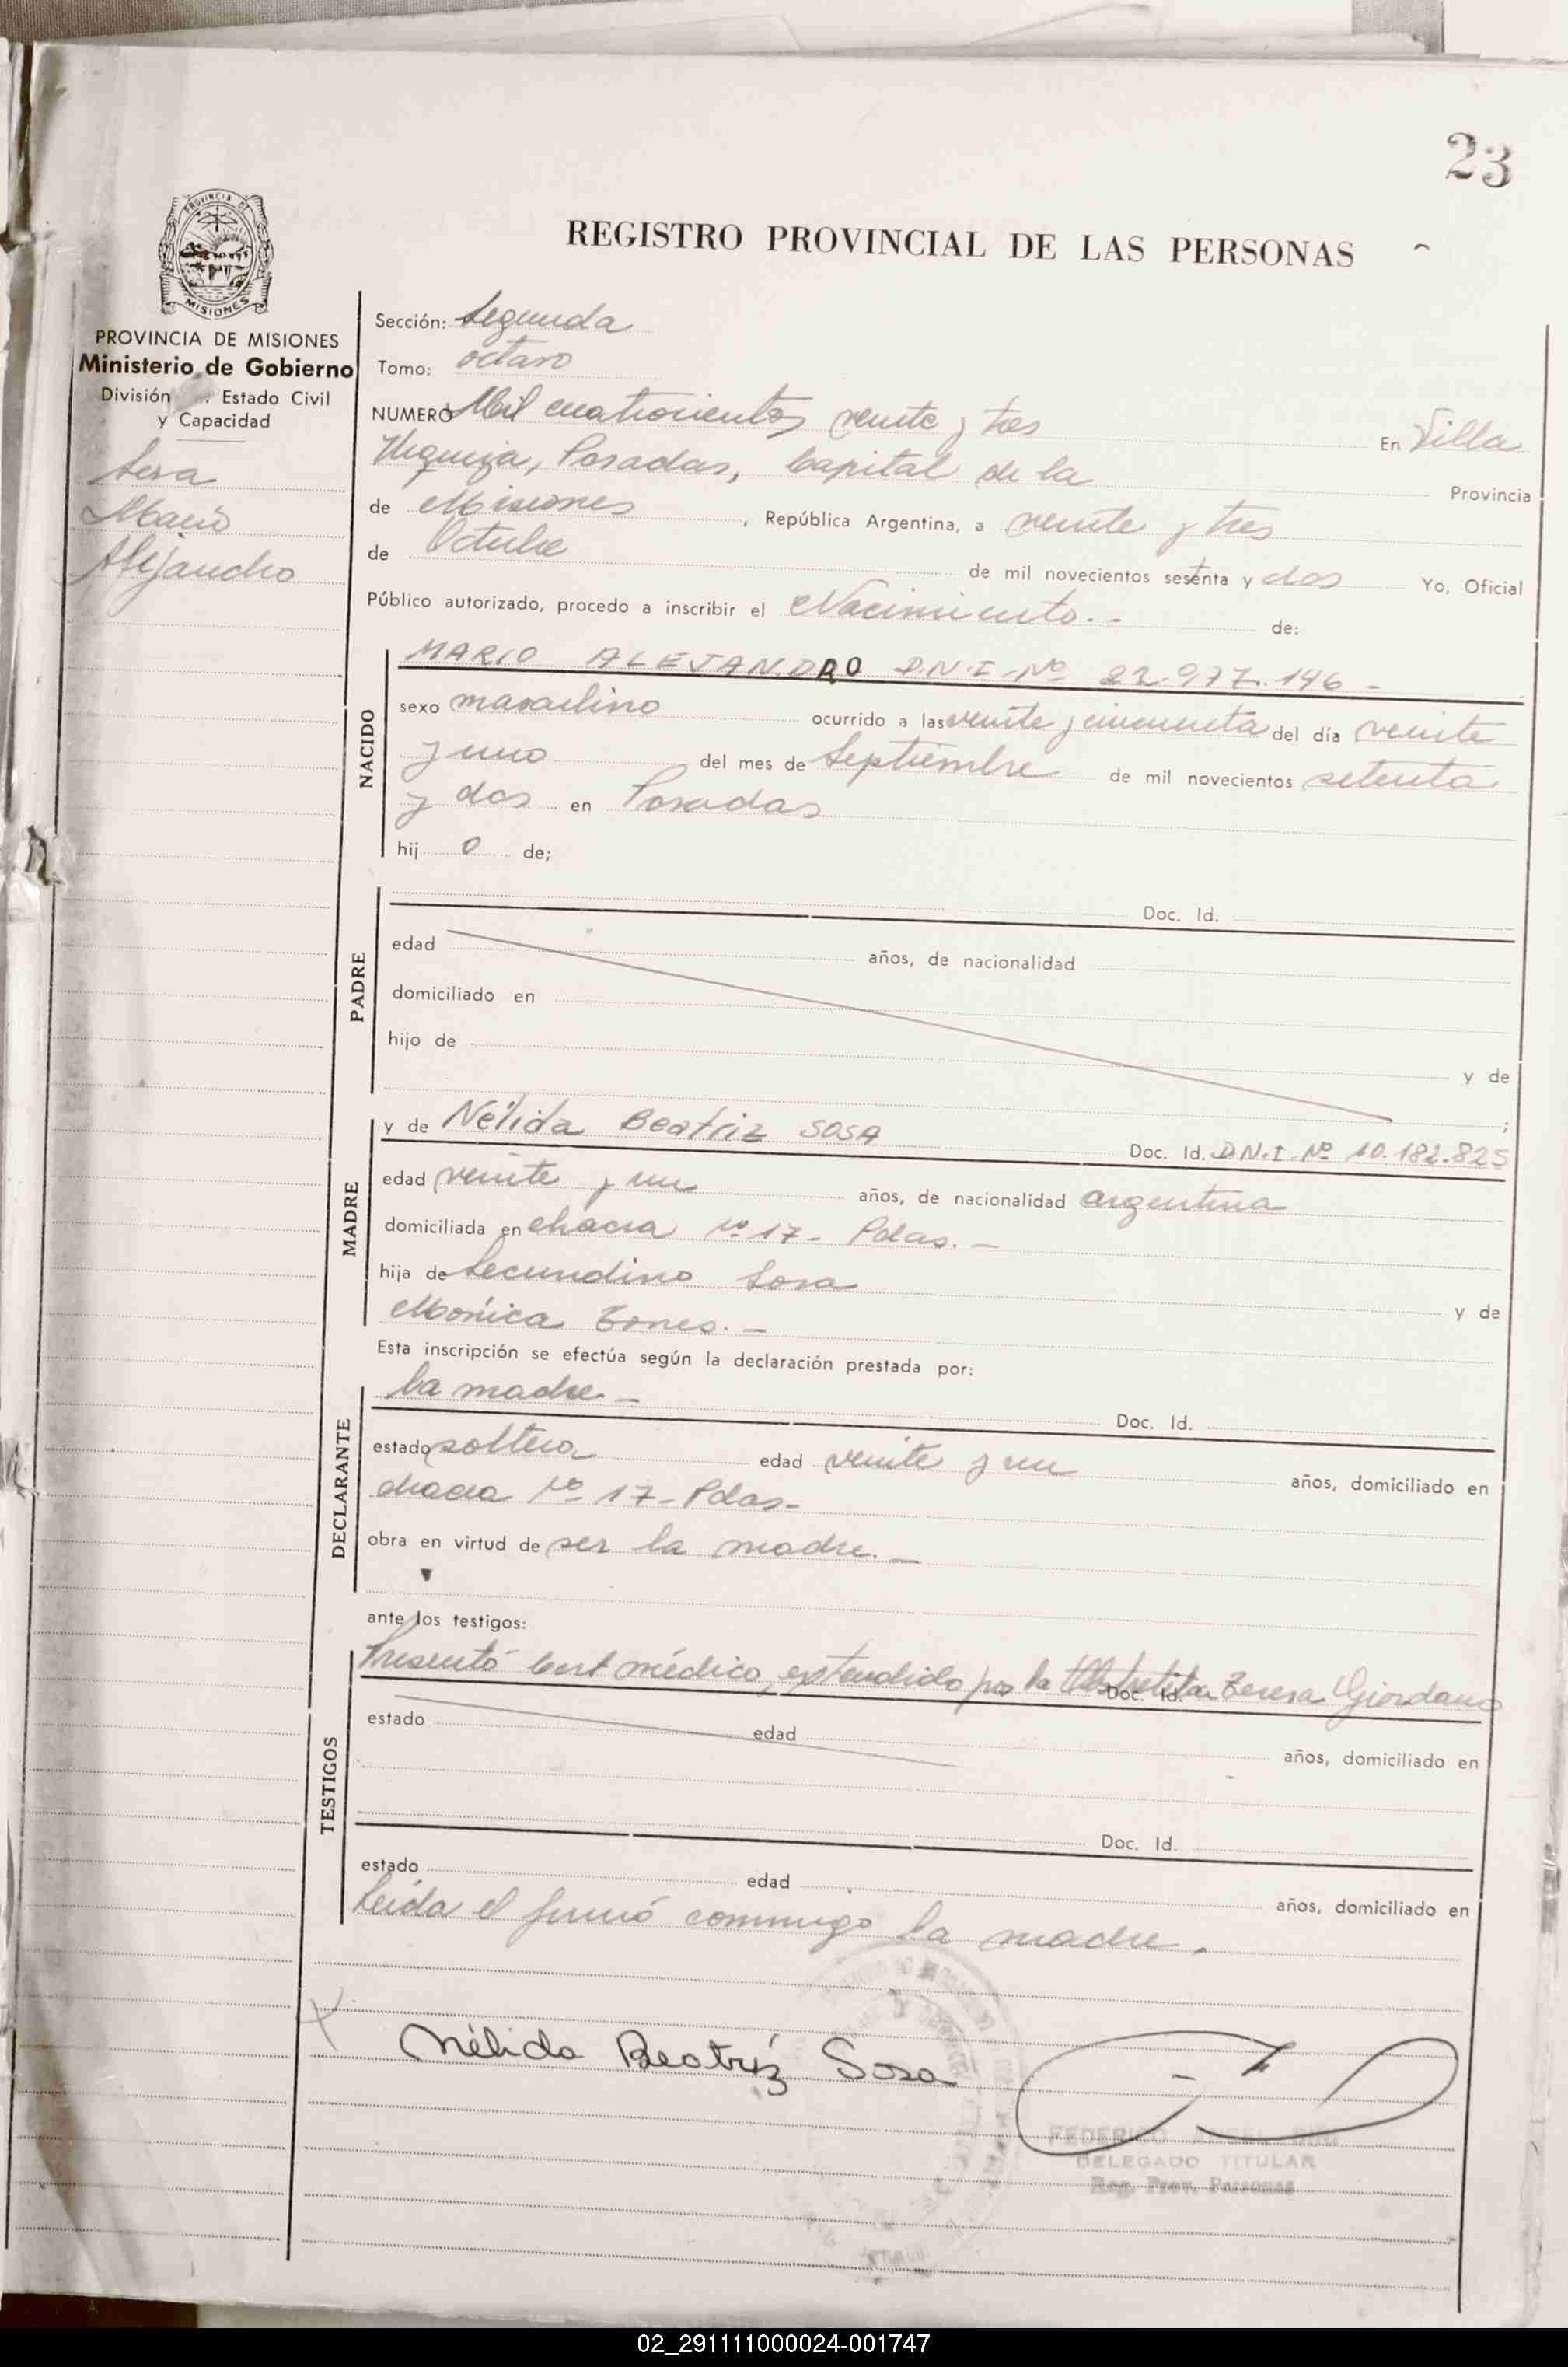 23
REGISTRO PROVINCIAL DE LAS PERSONAS
PROVINCIA DE MISIONES
MISIONES
PROVINCIA DE MISIONES
Ministerio de Gobierno
División Estado Civil
y Capacidad
Sosa
Mario
Alejandro
Sección: Segunda
Tomo: octavo
NUMERO Mil cuatrocientos veinte y tres En Villa
Urquiza, Posadas, Capital de la Provincia
de Misiones, República Argentina, a veinte y tres
de Octubre de mil novecientos sesenta y dos Yo, Oficial
Público autorizado, procedo a inscribir el Nacimiento.- de:
NACIDO
MARIO ALEJANDRO D.N.I. Nº 22.977.146 -
sexo masculino ocurrido a las veinte y cincuenta del día veinte
y uno del mes de Septiembre de mil novecientos setenta
y dos en Posadas
hij o de;
PADRE
Doc. Id.
edad años, de nacionalidad
domiciliado en
hijo de y de
;
MADRE
y de Nélida Beatriz SOSA Doc. Id. D.N.I. Nº 10.182.825
edad veinte y un años, de nacionalidad argentina
domiciliada en chacra nº 17- Pdas.-
hija de Secundino Sosa y de
Mónica .-
Esta inscripción se efectúa según la declaración prestada por:
DECLARANTE
La madre - Doc. Id.
estado soltera edad veinte y un años, domiciliado en
chacra Nº 17- Pdas-
obra en virtud de ser la madre.-
ante los testigos:
TESTIGOS
Presentó Cert médico, extendido por la Obstetita Teresa Giordano
Doc. Id.
estado edad años, domiciliado en
Doc. Id.
estado edad años, domiciliado en
Leída el firmó conmigo la madre.
Nélida Beatríz Sosa
FEDERICO ANGEL
DELEGADO TITULAR
Reg. Prov. Personas
02_291111000024-001747